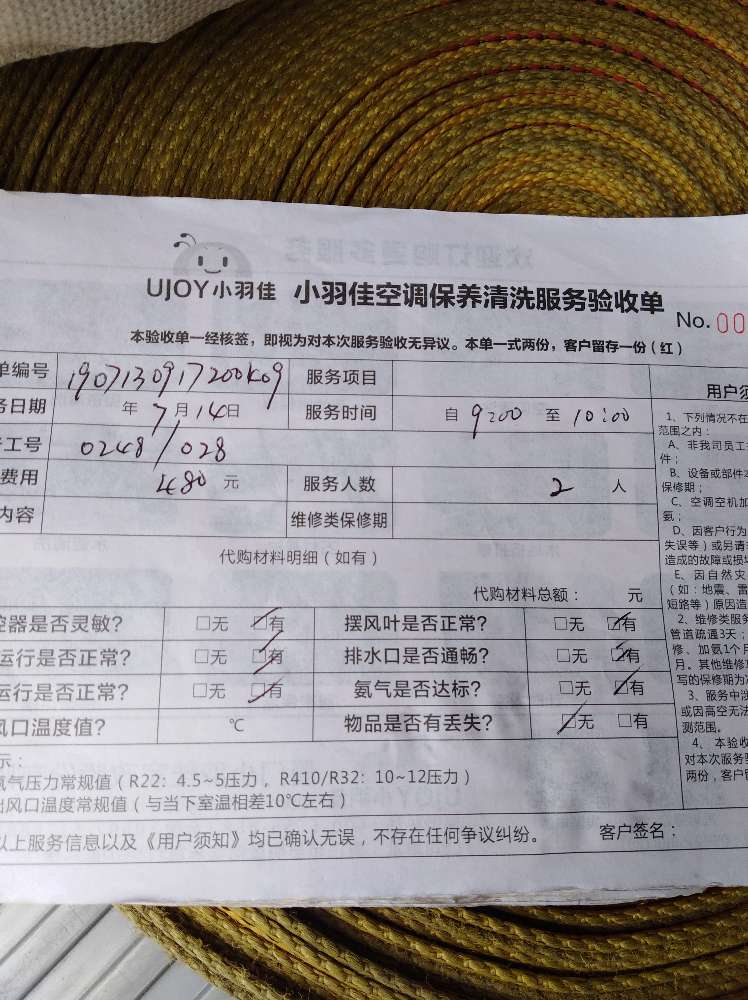 UJOY小羽佳 小羽佳空调保养清洗服务验收单 No.00
本验收单一经核签，即视为对本次服务验收无异议。本单一式两份，客户留存一份（红）
单编号 1907130917200K09 服务项目
务日期 年7月14日 服务时间 自9:00至10:00
工号 0248/028
费用 480元 服务人数 2人
内容 维修类保修期
代购材料明细（如有）
代购材料总额： 元
控器是否灵敏? □无 ☑有 摆风叶是否正常? □无 ☑有
运行是否正常? □无 ☑有 排水口是否通畅? □无 ☑有
运行是否正常? □无 ☑有 氨气是否达标? □无 ☑有
风口温度值? ℃ 物品是否有丢失? ☑无 □有
示：
氨气压力常规值（R22：4.5~5压力，R410/R32：10~12压力）
出风口温度常规值（与当下室温相差10℃左右）
以上服务信息以及《用户须知》均已确认无误，不存在任何争议纠纷。 客户签名：
用户须
1、下列情况不在
范围之内：
A、非我司员工
件；
B、设备或部件
保修期；
C、空调空机加
氨；
D、因客户行为
失误等）或另请
造成的故障或损
E、因自然灾
（如：地震、雷
短路等）原因造
2、维修类服务
管道疏通3天；
修、加氨1个月
月。其他维修
写的保修期为
3、服务中涉
或因高空无法
测范围。
4、本验收
对本次服务
两份，客户留